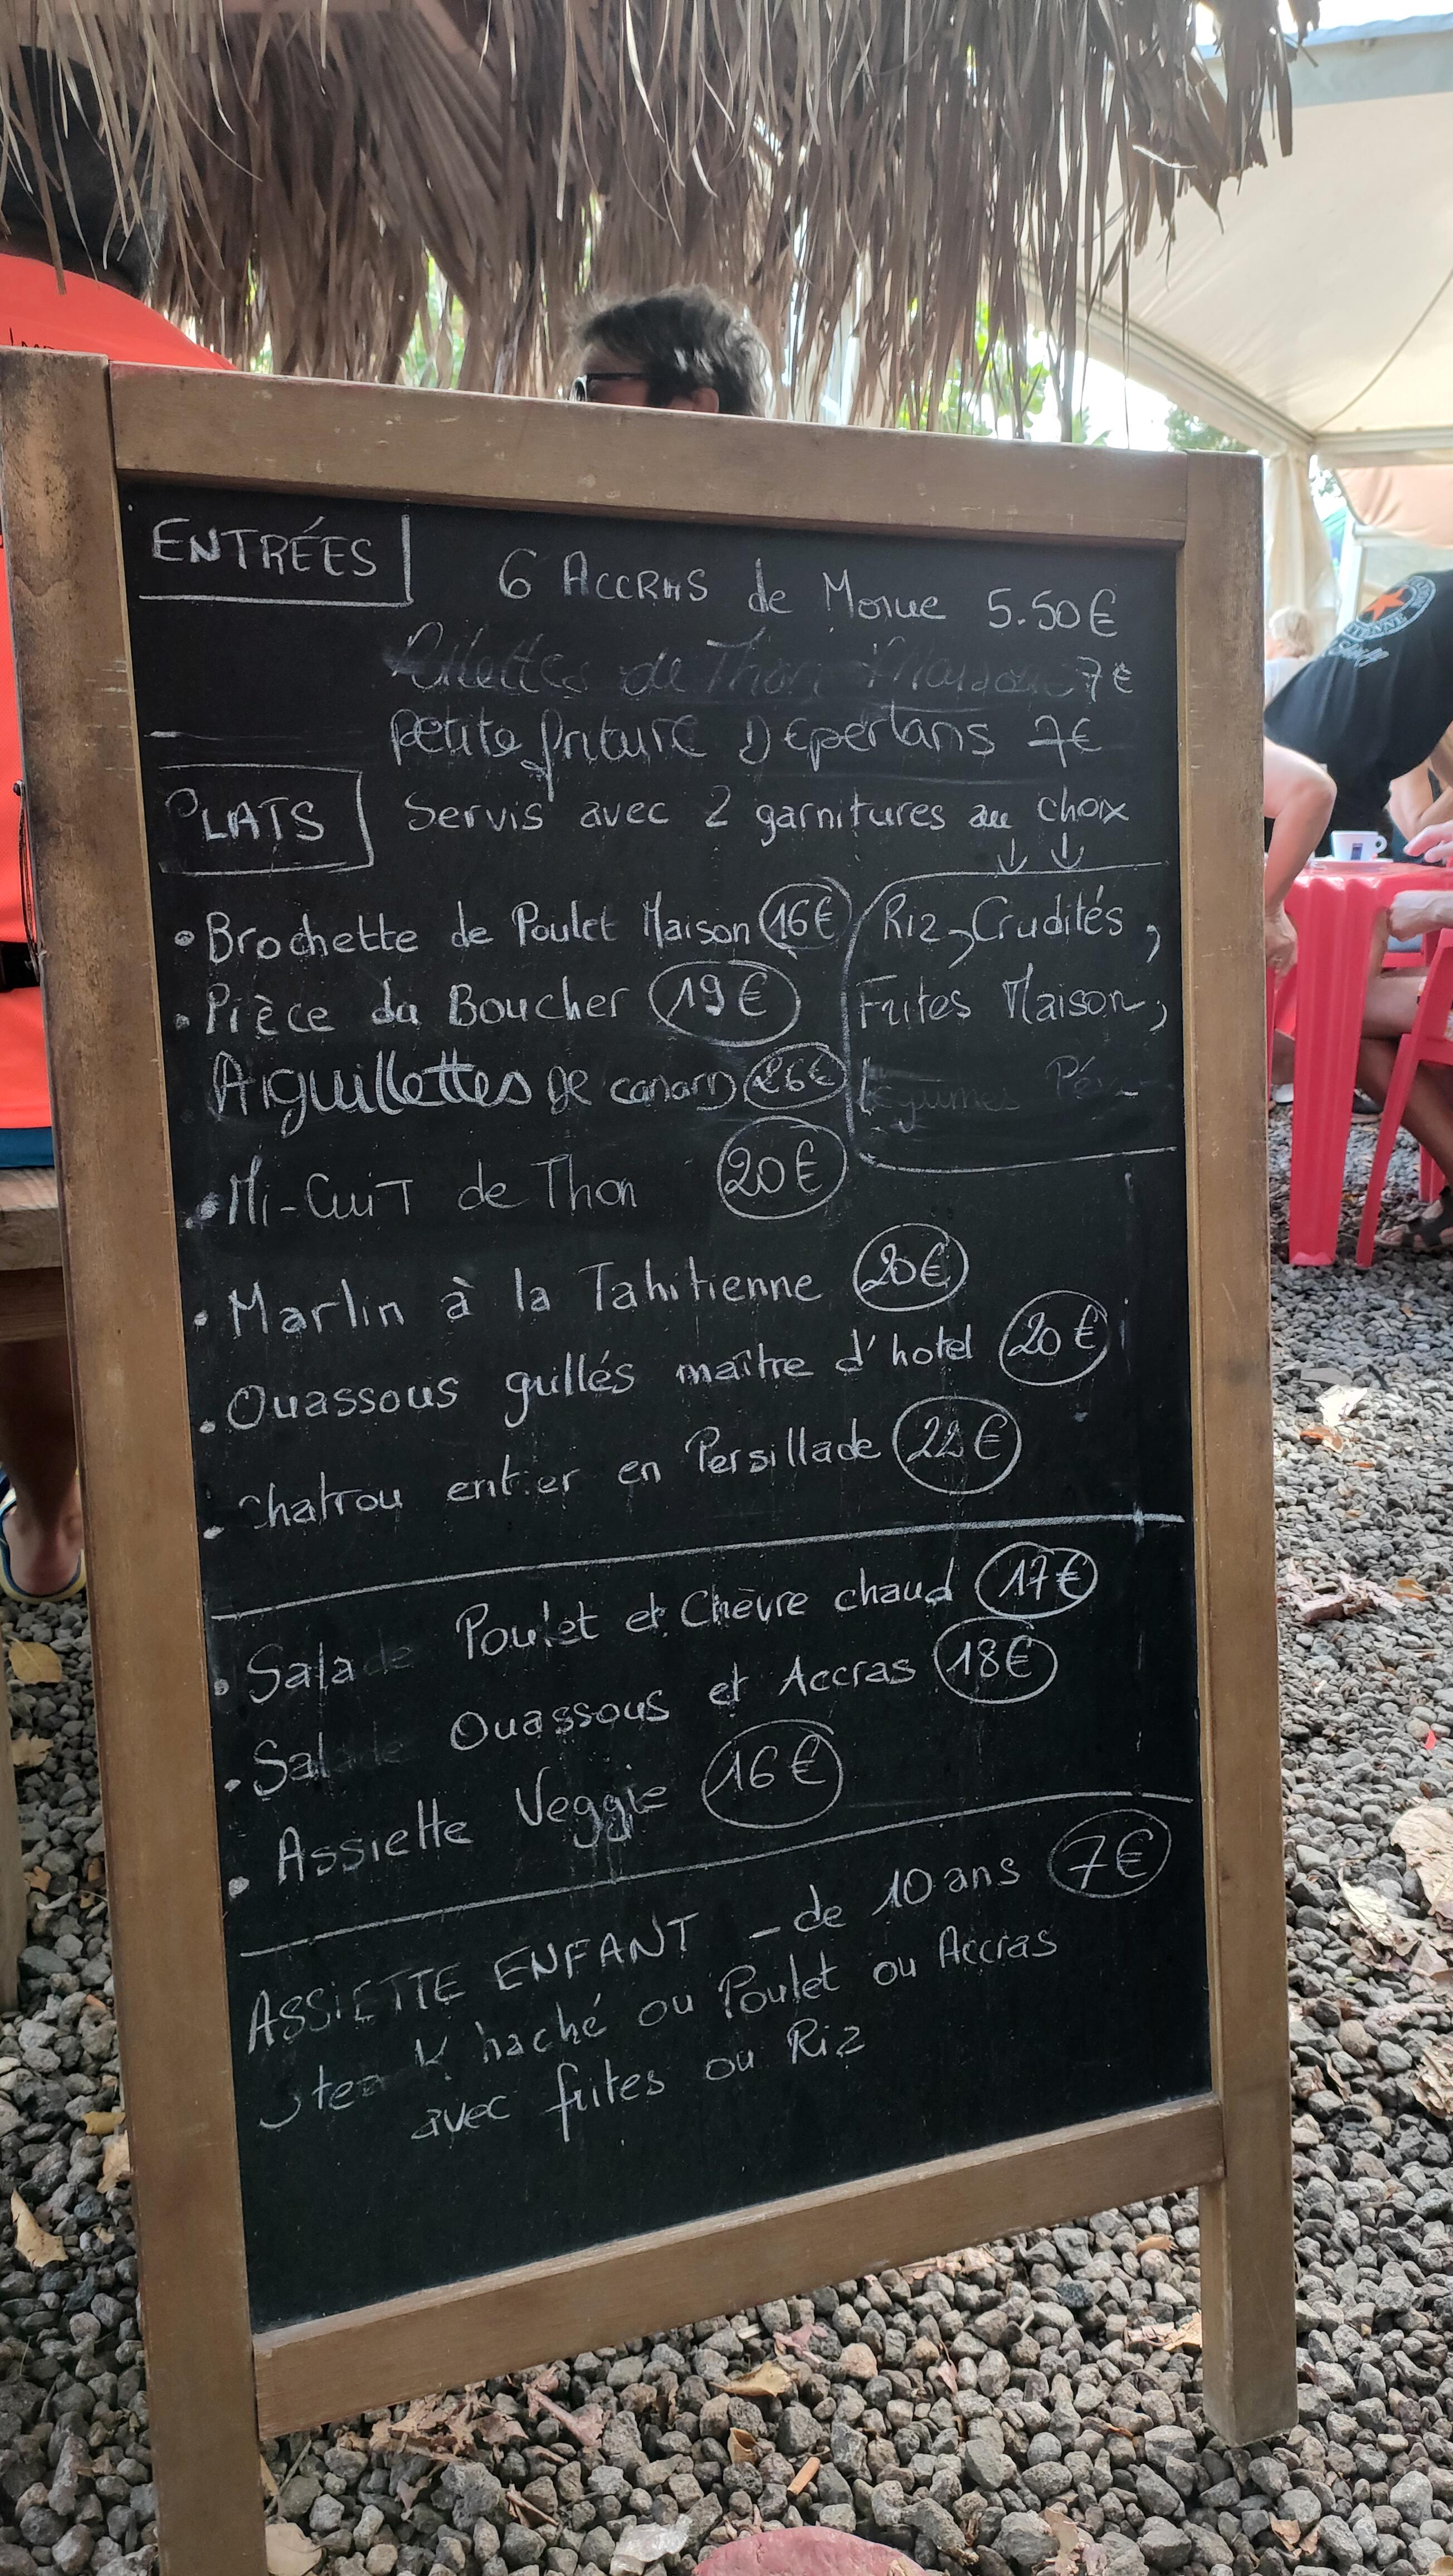 ENTRÉES
6 ACCRAS de Morue 5.50€
Rillettes de Thon Maison 7€
petite friture D'Eperlans 7€
PLATS
Servis avec 2 garnitures au choix
• Brochette de Poulet Maison 16€
Riz, Crudités,
• Pièce du Boucher 19€
Frites Maison,
Aiguillettes de canard 26€
Légumes
• Mi-Cuit de Thon 20€
• Marlin à la Tahitienne 20€
• Ouassous grillés maître d'hotel 20€
• Chatrou entier en Persillade 22€
• Salade Poulet et Chèvre chaud 17€
• Salade Ouassous et Accras 18€
• Assiette Veggie 16€
ASSIETTE ENFANT - de 10 ans 7€
Steak haché ou Poulet ou Accras
avec frites ou Riz